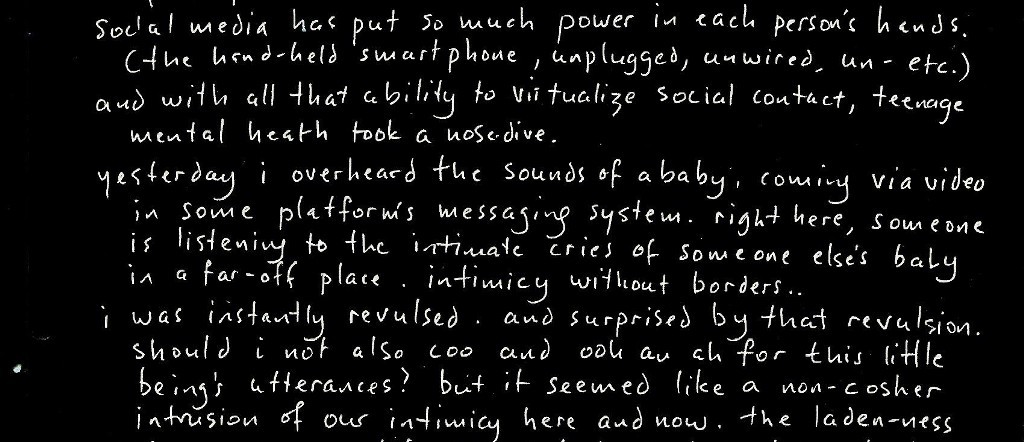 social media has put so much power in each person's hands.
(the hand-held smartphone, unplugged, unwired, un-etc.)
and with all that ability to virtualize social contact, teenage
mental heath took a nosedive.
yesterday i overheard the sounds of a baby, coming via video
in some platform's messaging system. right here, someone
is listening to the intimate cries of someone else's baby
in a far-off place. intimicy without borders..
i was instantly revulsed. and surprised by that revulsion.
should i not also coo and ooh an ah for this little
being's utterances? but it seemed like a non-cosher
intrusion of our intimicy here and now. the laden-ness